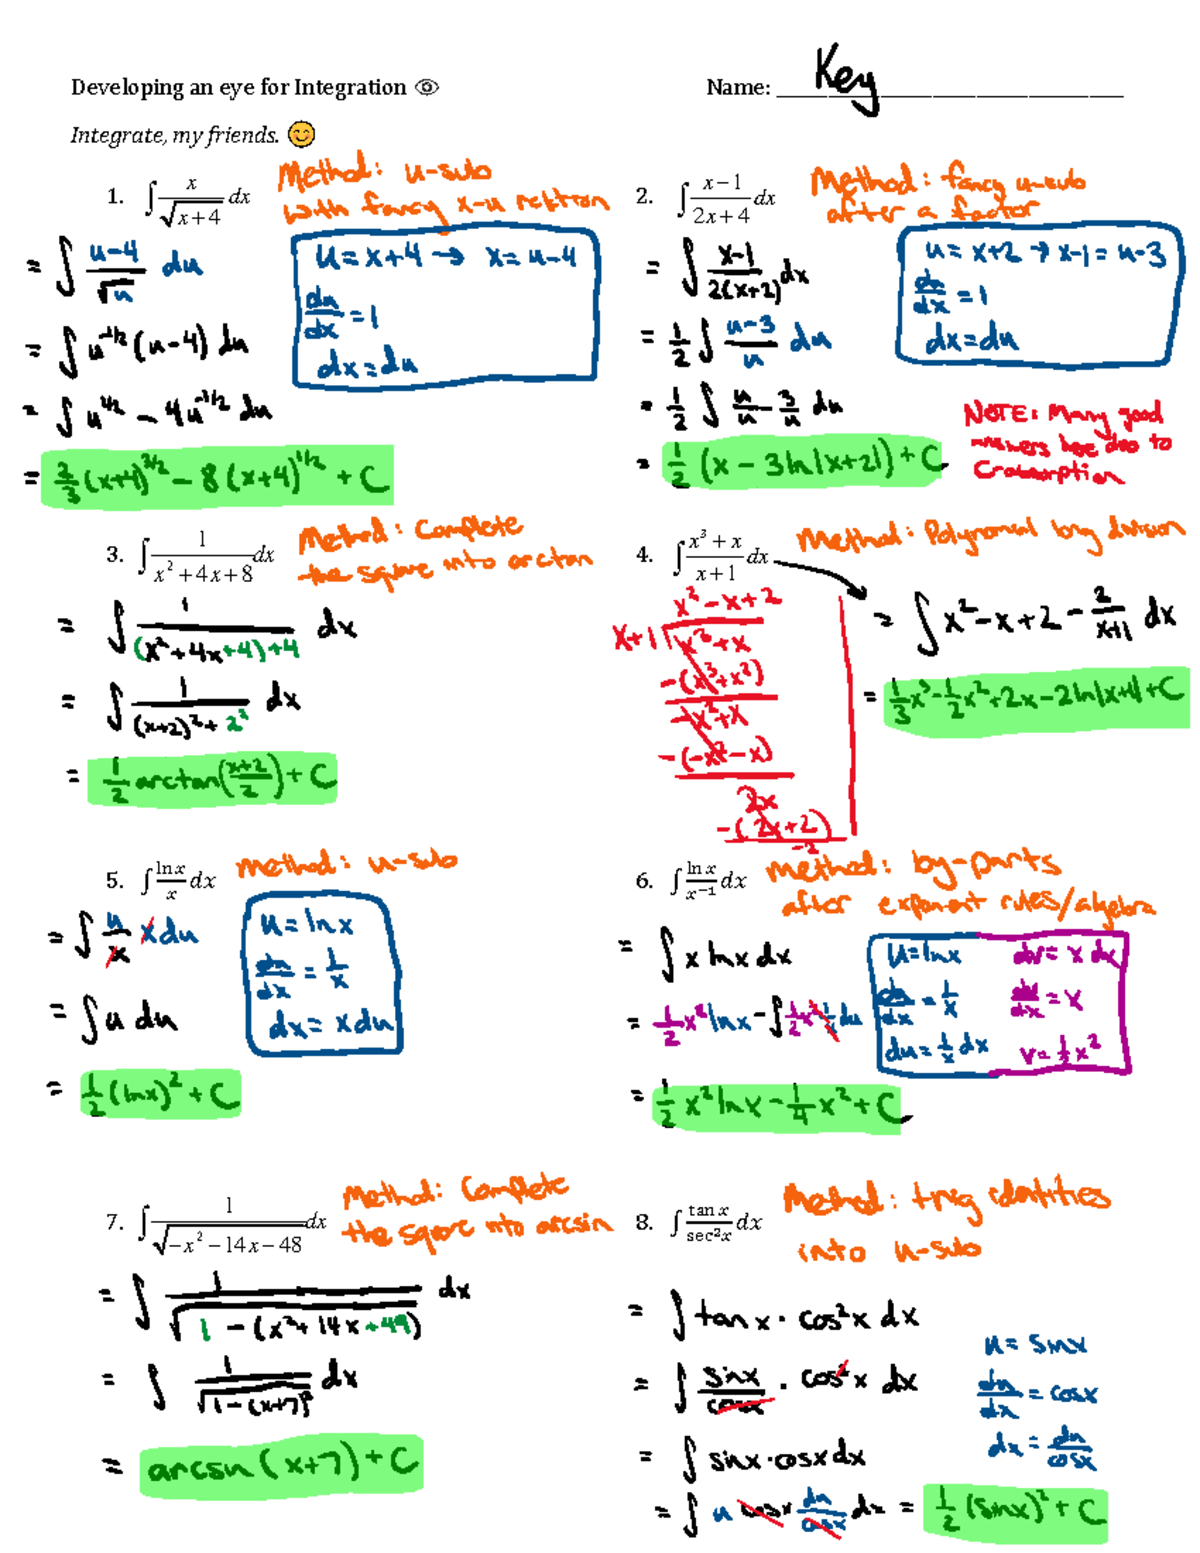 Developing an eye for Integration 👁
Name: Key
Integrate, my friends. 😊
1. ∫ x/√(x+4) dx
Method: u-sub
with fancy x-u relation
= ∫ (u-4)/√u du
u = x+4 → x = u-4
du/dx = 1
dx = du
= ∫ u^(-1/2) (u-4) du
= ∫ u^(1/2) - 4u^(-1/2) du
= 2/3 (x+4)^(3/2) - 8(x+4)^(1/2) + C
2. ∫ (x-1)/(2x+4) dx
Method: fancy u-sub
after a factor
= ∫ (x-1)/(2(x+2)) dx
u = x+2 → x-1 = u-3
du/dx = 1
dx = du
= 1/2 ∫ (u-3)/u du
= 1/2 ∫ u/u - 3/u du
= 1/2 (x - 3ln|x+2|) + C
NOTE: Many good
answers here due to
C-absorption
3. ∫ 1/(x²+4x+8) dx
Method: Complete
the square into arctan
= ∫ 1/((x²+4x+4)+4) dx
= ∫ 1/((x+2)²+2²) dx
= 1/2 arctan((x+2)/2) + C
4. ∫ (x³+x)/(x+1) dx
Method: Polynomial long division
x²-x+2
x+1 x³+x
-(x³+x²)
-x²+x
-(-x²-x)
2x
-(2x+2)
-2
= ∫ x²-x+2 - 2/(x+1) dx
= 1/3x³ - 1/2x² + 2x - 2ln|x+1| + C
5. ∫ ln x/x dx
Method: u-sub
= ∫ u/x x du
u = ln x
du/dx = 1/x
dx = x du
= ∫ u du
= 1/2 (ln x)² + C
6. ∫ ln x/x⁻¹ dx
Method: by-parts
after exponent rules/algebra
= ∫ x ln x dx
u = ln x
du/dx = 1/x
du = 1/x dx
dv = x dx
dv/dx = x
v = 1/2 x²
= 1/2 x² ln x - ∫ 1/2 x² 1/x du
= 1/2 x² ln x - 1/4 x² + C
7. ∫ 1/√(-x²-14x-48) dx
Method: Complete
the square into arcsin
= ∫ 1/√(1-(x²+14x+49)) dx
= ∫ 1/√(1-(x+7)²) dx
= arcsin(x+7) + C
8. ∫ tan x/sec²x dx
Method: trig identities
into u-sub
= ∫ tan x · cos²x dx
= ∫ sin x/cos x · cos²x dx
u = sin x
du/dx = cos x
dx = du/cos x
= ∫ sin x · cos x dx
= ∫ u cos x du/cos x dx = 1/2 (sin x)² + C